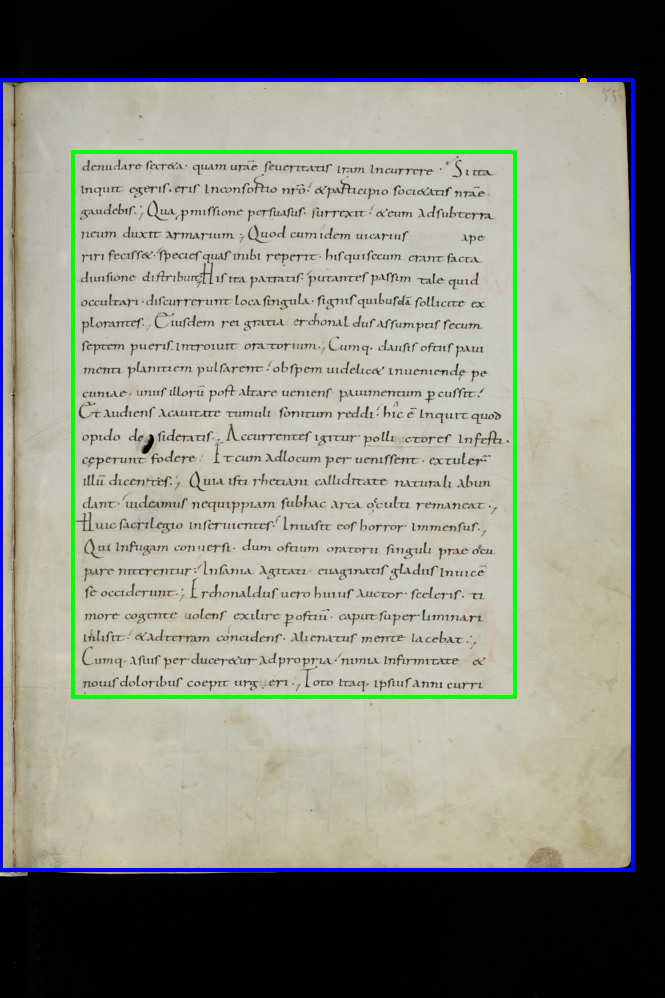 denudare secreta · quam ur̄ae seueritatis iram incurrere · Si ita
inquit egeris · eris in consortio nr̄o · & participio societatis nr̄ae
gaudebis ·; Qua p̱missione persuasus · surrexit · & eum ad subterra
neum duxit armarium ·; Quod cum idem uicarius ape
riri fecisse& · species quas inibi reperit · his qui secum erant facta
diuisione distribuit; His ita patratis · putantes passim tale quid
occultari · discurrerunt loca singula · signis quibusdā sollicite ex
plorantes ·; Eiusdem rei gratia erchonaldus assumptis secum
septem pueris · introiuit oratorium ·; Cumq· clausis ostiis paui
menti planitiem pulsarent · ob spem uidelic& inueniendę pe
cuniae · unus illorū post altare ueniens pauimentum ꝑcussit ·
Et audiens a cauitate tumuli sonitum reddi · hic ē inquit quod
opido desideratis ·; Accurrentes igitur pollictores infesti ·
ceperunt fodere · Et cum ad locum peruenissent · extuler̄
illū dicentes ·; Quia isti rhetiani calliditate naturali abun
dant · uideamus ne quippiam sub hac arca occulti remaneat ·,
Huic sacrilegio inseruientes · Inuasit eos horror immensus ·,
Qui in fugam conuersi · dum ostium oratorii singuli prae occu
pare niterentur · Insania agitati euaginatis gladiis inuicē
se occiderunt ·; Erchonaldus uero huius auctor sceleris · ti
more cogente uolens exilire ꝑ ostiū · caput superliminari
inlisit · & ad terram concidens · alienatus mente iacebat ·;
Cumq· a suis per ducere&ur ad propria · nimia infirmitate &
nouis doloribus coepit urgeri ·, Toto itaq· ipsius anni curri
55